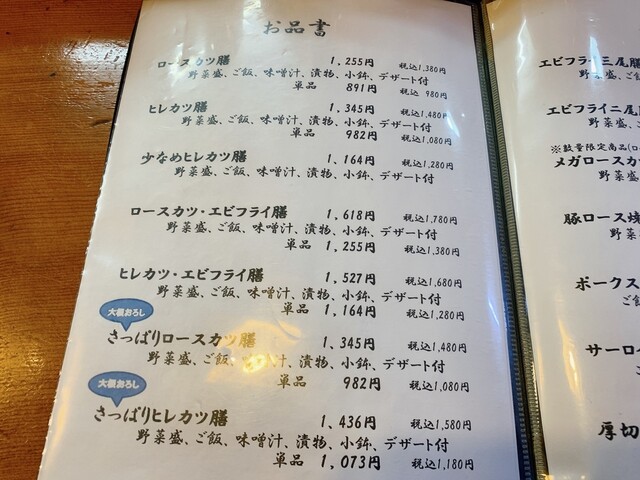 お品書
ロースカツ膳 1,255円 税込1,380円
野菜盛、ご飯、味噌汁、漬物、小鉢、デザート付
単品 891円 税込 980円
ヒレカツ膳 1,345円 税込1,480円
野菜盛、ご飯、味噌汁、漬物、小鉢、デザート付
単品 982円 税込1,080円
少なめヒレカツ膳 1,164円 税込1,280円
野菜盛、ご飯、味噌汁、漬物、小鉢、デザート付
ロースカツ・エビフライ膳 1,618円 税込1,780円
野菜盛、ご飯、味噌汁、漬物、小鉢、デザート付
単品 1,255円 税込1,380円
ヒレカツ・エビフライ膳 1,527円 税込1,680円
野菜盛、ご飯、味噌汁、漬物、小鉢、デザート付
単品 1,164円 税込1,280円
大根おろし
さっぱりロースカツ膳 1,345円 税込1,480円
野菜盛、ご飯、味噌汁、漬物、小鉢、デザート付
単品 982円 税込1,080円
大根おろし
さっぱりヒレカツ膳 1,436円 税込1,580円
野菜盛、ご飯、味噌汁、漬物、小鉢、デザート付
単品 1,073円 税込1,180円
エビフライ三尾膳
野菜盛、ご飯
エビフライ二尾膳
野菜盛、ご
※数量限定商品(ロ
メガロースカ
野菜
豚ロース焼
野菜
ポークス
ご
サーロイ
厚切